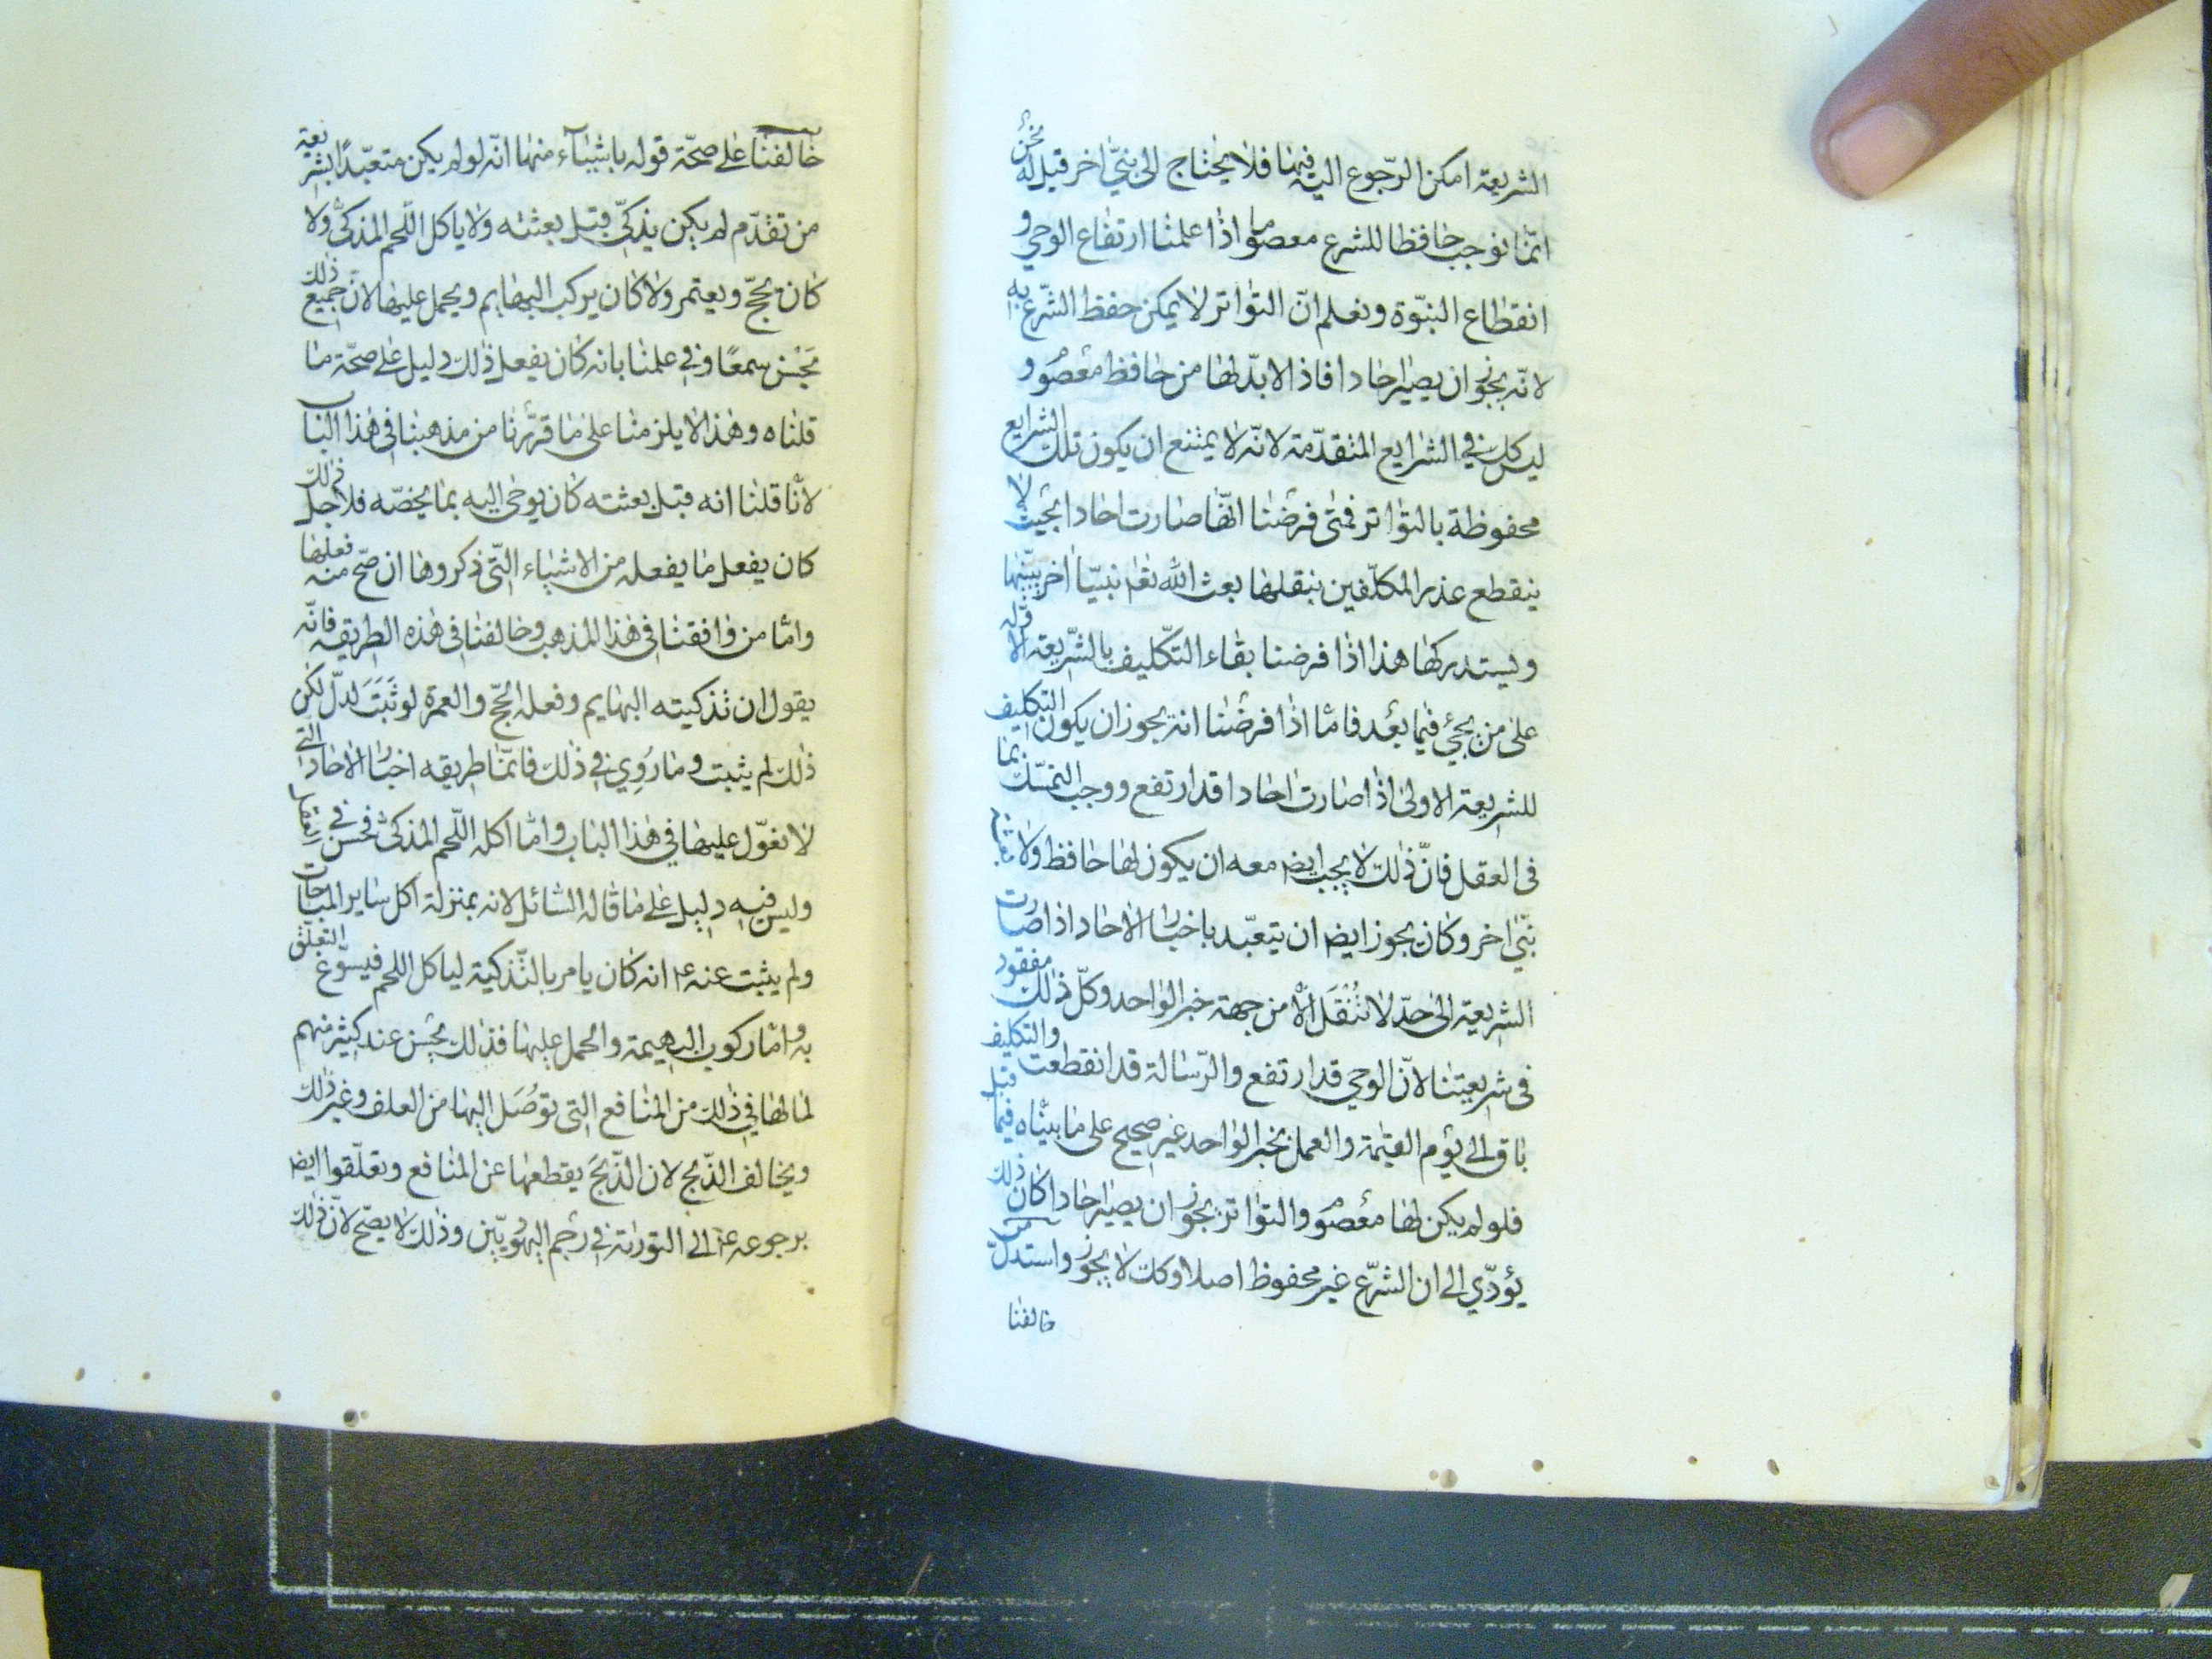 الشريعة امكن الرّجوع اليه فيها فلا يحتاج الى نبيّ اخر قيل له نحن
انّما نوجب حافظا للشرع معصوما اذا علمنا ارتفاع الوحي و
انقطاع النبوّة ونعلم انّ التواتر لا يمكن حفظ الشّرع به
لانّه يجوز ان يصير احادا فاذا لا بدّ لها من حافظ معصوم و
ليس كك في الشرايع المتقدّمة لانّه لا يمتنع ان يكون تلك الشرايع
محفوظة بالتواتر فمتى فرضنا انّها صارت احادا بحيث لا
ينقطع عذر المكلّفين بنقلها بعث الله تعم نبيّا اخر يبيّنها
ويستدركها هذا اذا فرضنا بقاء التّكليف بالشّريعة الاولة
على من يجيئ فيما بعد فامّا اذا فرضنا انه يجوز ان يكون التكليف
للشريعة الاولى اذا صارت احادا قد ارتفع ووجب التمسّك بما
فى العقل فانّ ذلك لا يجب ايض معه ان يكون لها حافظ ولا بعثة
نبّي اخر وكان يجوز ايض ان يتعبّد باخبار الاحاد اذا صارت
الشريعة الى حدّ لا تُنْقَل الّا من جهة خبر الواحد وكلّ ذلك مفقود
فى شريعتنا لانّ الوحي قد ارتفع والرّسالة قد انقطعت والتكليف
باق الى يوم القيمة والعمل بخبر الواحد غير صحيح على ما بيّناه فيما قبل
فلو لم يكن لها معصوم والتواتر يجوز ان يصير احادا كان ذلك
يؤدّي الى ان الشرّع غير محفوظ اصلا وكك لا يجوز واستدلّ من
خالفنا
خالفنا على صحّة قوله باشياء منها انّه لو لم يكن متعبّدا بشريعة
من تقدّم لم يكن يذكّي قبل بعثته ولا ياكل اللّحم المذكّى ولا
كان يحجّ ويعتمر ولا كان يركب البهايم ويحمل عليها لان جميع ذلك
يَحْسُن سمعًا وفي علمنا بانه كان يفعل ذلك دليل على صحّة ما
قلناه وهذا لا يلزمنا على ما قرّرنا من مذهبنا فى هذا الباب
لانّا قلنا انه قبل بعثته كان يوحى اليه بما يخصّه فلاجل ذلك
كان يفعل ما يفعله من الاشياء التّى ذكروها ان صحّ منه فعلها
وامّا من وافقنا فى هذا المذهب وخالفنا فى هذه الطريقه فانّه
يقول ان تذكيته البهايم وفعله الحّج والعمرة لو ثَبَتَ لدلّ لكن
ذلك لم يثبت وما رُوِي في ذلك فانّما طريقه اخبار الاحاد التي
لا نعوّل عليها في هذا الباب وامّا اكله اللّحم المذكّى فحسن في العقل
وليس فيه دليل على ما قاله السّائل لانه بمنزلة اكل ساير المباحات
ولم يثبت عنه ع انه كان يامر بالتّذكية لياكل اللحم فيسوّغ التعلّق
به وامّا ركوب البهيمة والحمل عليها فذلك يحسن عند كثير منهم
لما لها في ذلك من المنافع التى توصَل اليها من العلف وغير ذلك
ويخالف الذّبح لان الذّبحَ يقطعها عن المنافع وتعلّقوا ايض
برجوعه ع الى التوراة في رجم اليهوديّين وذلك لا يصّح لانّ ذلك